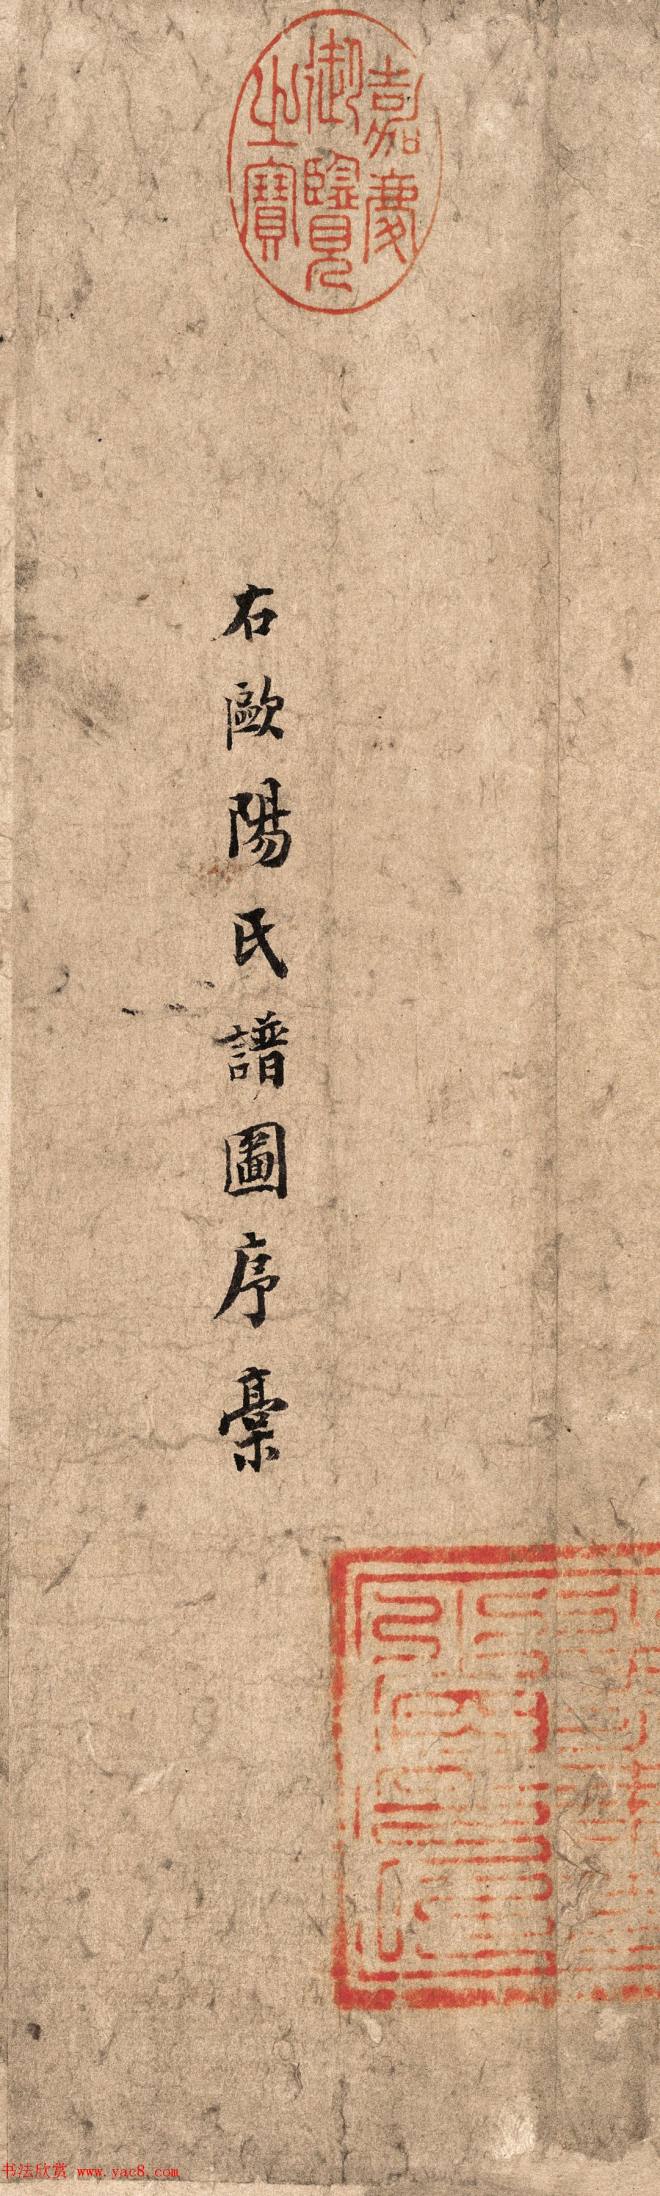 嘉慶
御覽
之寶
右歐陽氏譜圖序稾
书法欣赏 www.yac8.com